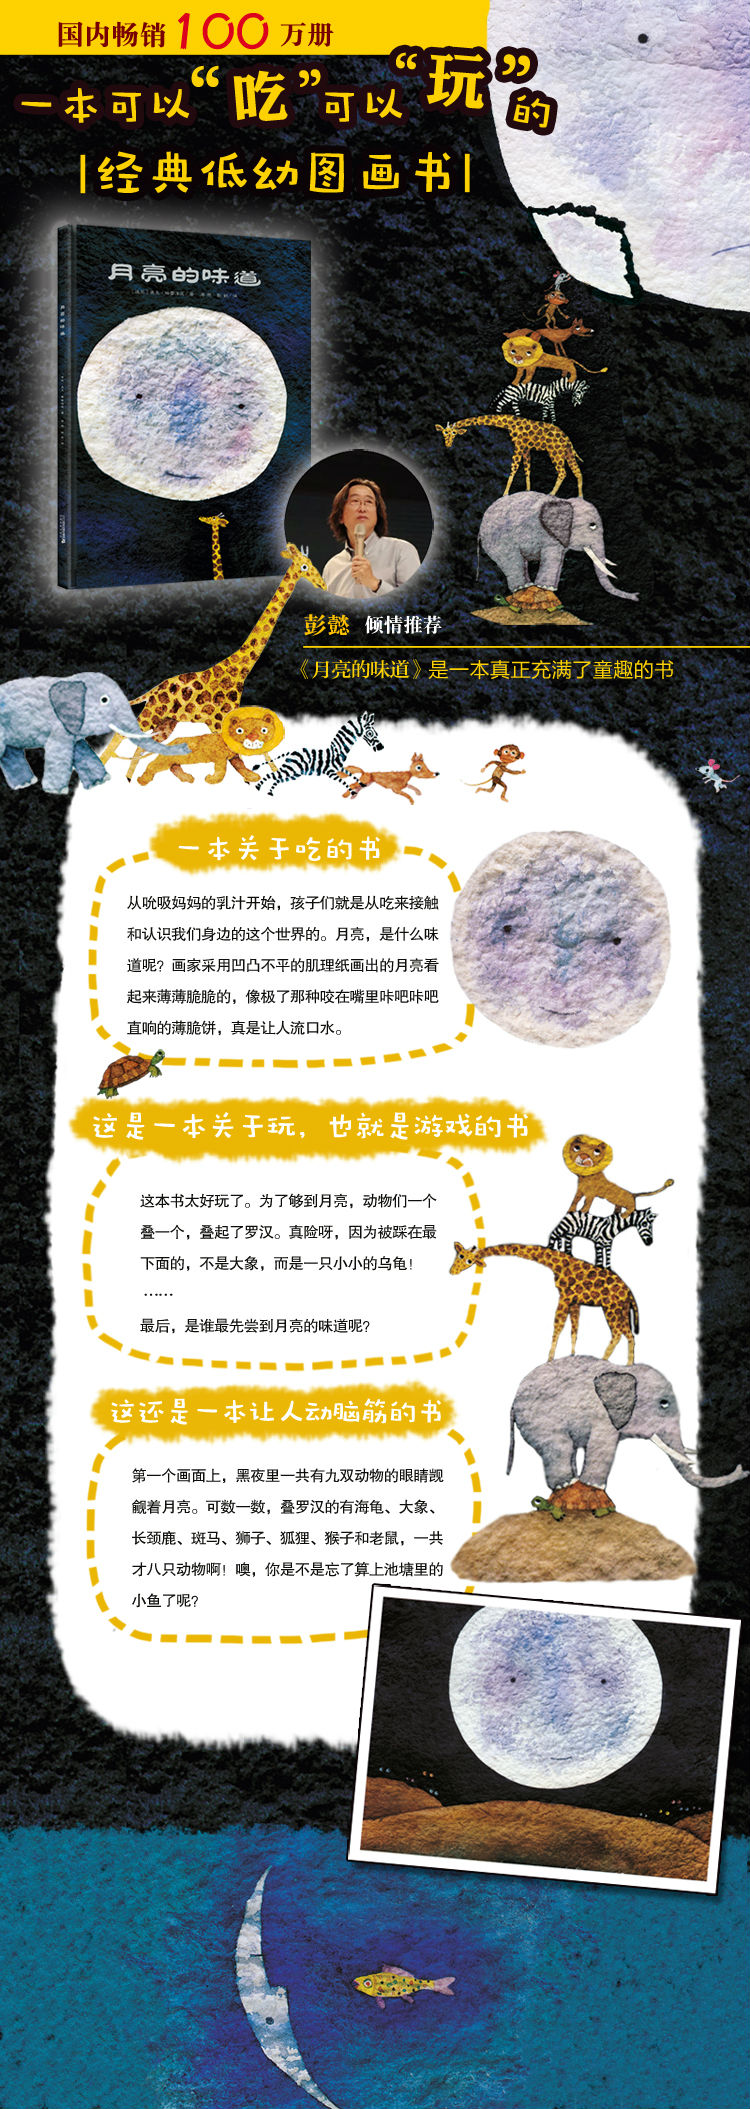 国内畅销100万册
一本可以“吃”可以“玩”的
经典低幼图画书
月亮的味道
月亮的味道
彭懿 倾情推荐
《月亮的味道》是一本真正充满了童趣的书
一本关于吃的书
从吮吸妈妈的乳汁开始，孩子们就是从吃来接触
和认识我们身边的这个世界的。月亮，是什么味
道呢？画家采用凹凸不平的肌理纸画出的月亮看
起来薄薄脆脆的，像极了那种咬在嘴里咔吧咔吧
直响的薄脆饼，真是让人流口水。
这是一本关于玩，也就是游戏的书
这本书太好玩了。为了够到月亮，动物们一个
叠一个，叠起了罗汉。真险呀，因为被踩在最
下面的，不是大象，而是一只小小的乌龟！
……
最后，是谁最先尝到月亮的味道呢？
这还是一本让人动脑筋的书
第一个画面上，黑夜里一共有九双动物的眼睛觊
觎着月亮。可数一数，叠罗汉的有海龟、大象、
长颈鹿、斑马、狮子、狐狸、猴子和老鼠，一共
才八只动物啊！噢，你是不是忘了算上池塘里的
小鱼了呢？